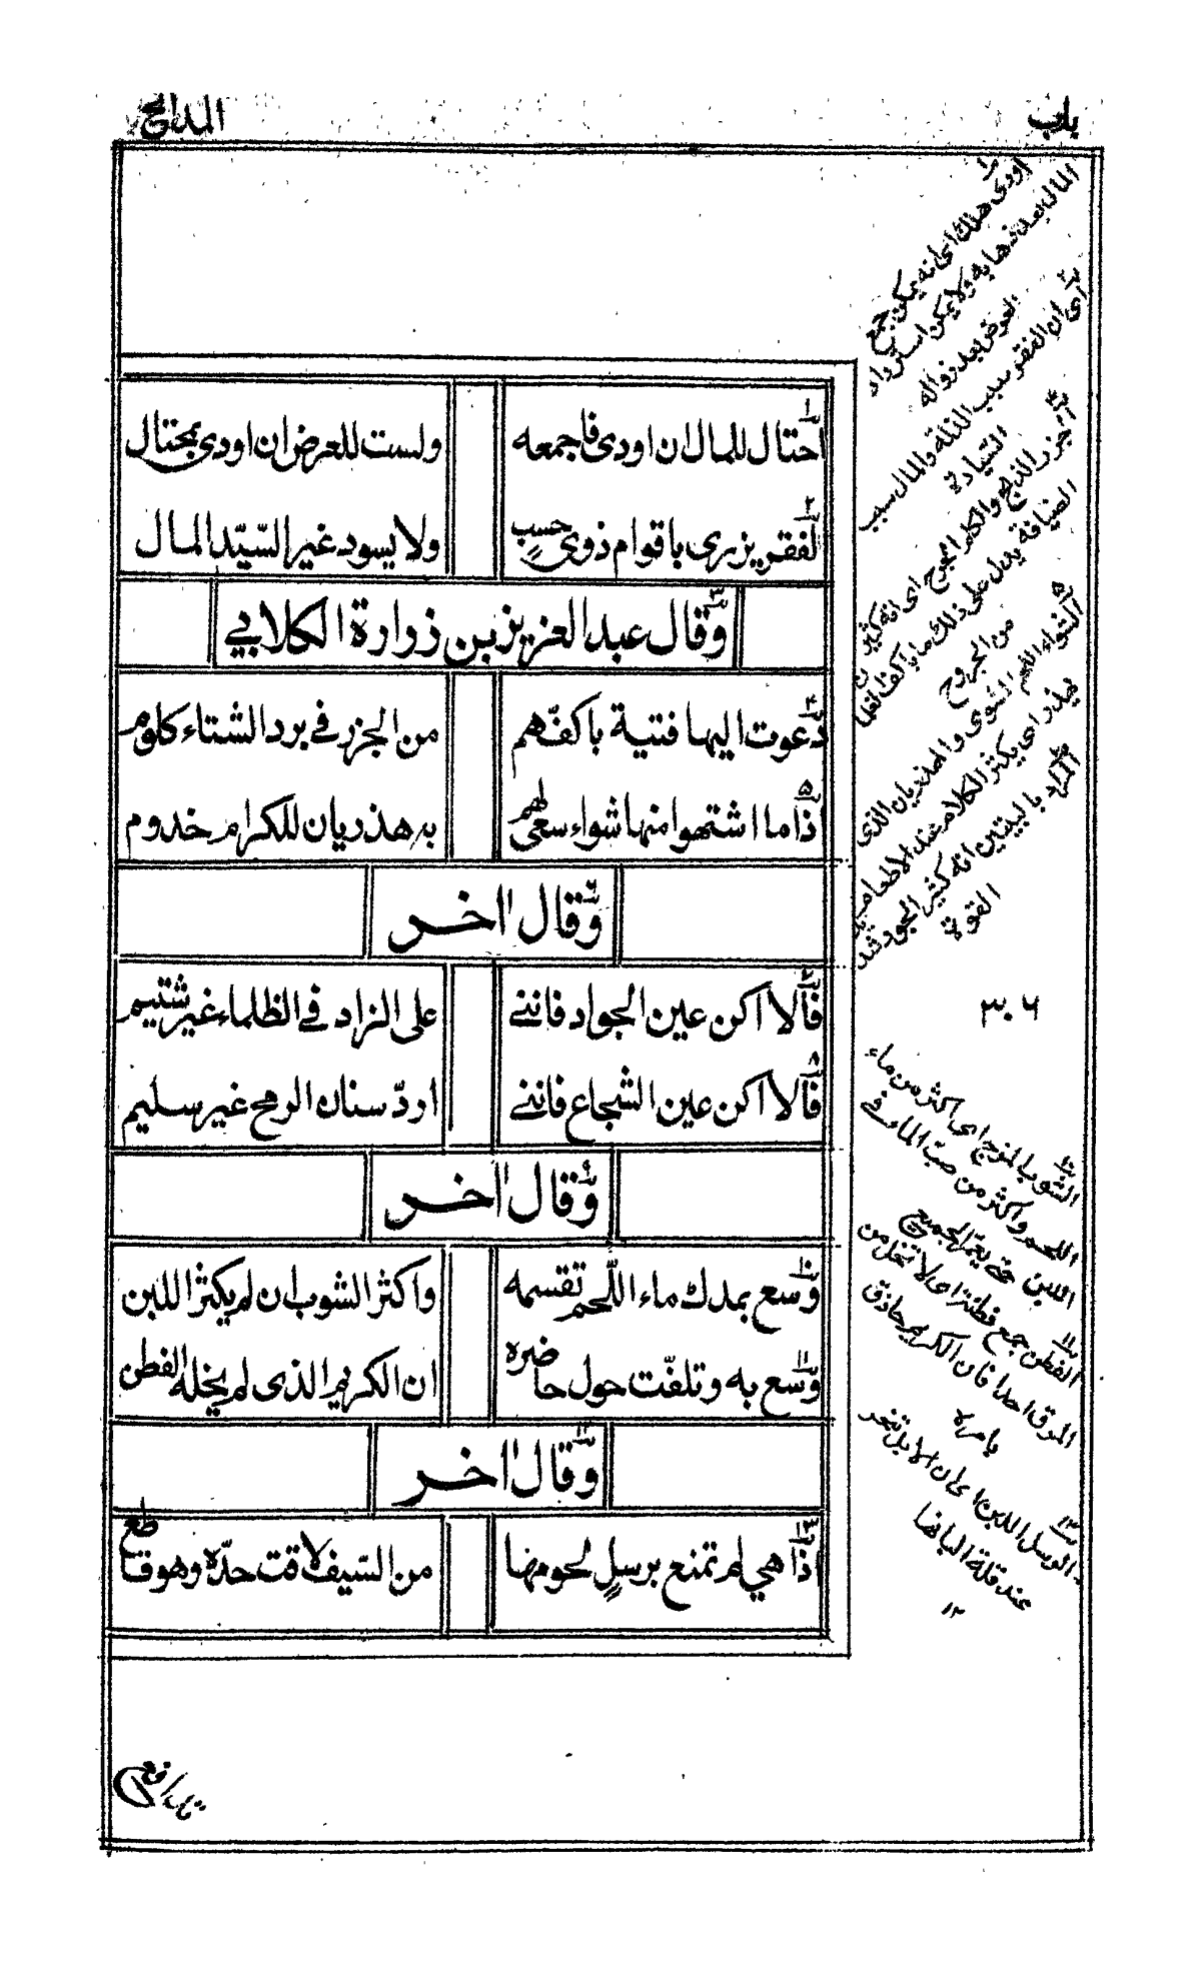 باب
المدائح
احتال للمال ان اودى فاجمعه ولست للعرض ان اودى بمحتال
لفقر يزرى باقوام ذوى حسب ولا يسود غير السّيّد المال
وقال عبد العزيز بن زرارة الكلابي
دعوت اليها فتية باكفّهم من الجزر في برد الشتاء كلوم
اذا ما اشتهوا منها شواء سعى لهم به هذريان للكرام خدوم
وقال اٰخر
فالا اكن عين الجواد فاننے على الزاد في الظلماء غير شتيم
فالا اكن عين الشجاع فاننے اردّ سنان الرمح غير سليم
وقال اٰخر
وسع بمدك ماء اللّحم تقسمه واكثر الشوب ان لم يكثر اللبن
وسع به وتلفّت حول حاضره ان الكريم الذى لم يخله الفطن
وقال اٰخر
اذا هي لم تمنع برسلٍ لحومها من السّيف لاقت حدّه وهو قاطع
اودى هلك اى انه يمكن جمع
المال بعد ذهابه ولا يمكن استرداد
العرض بعد زواله
اى ان الفقر سبب الذلة والمال سبب
السّيادة
الجزر الذبح والكلم الجرح اى انه كثير
الضيافة يدل على ذلك ما باكف
من الجروح
الشواء اللحم الشوى والهذريان الذى
يهذر اى يكثر الكلام عند الاطعام
المراد باليتين انه كثير الجود شديد
القوة
٣٠٦
الشوب المزج اى اكثر من ماء
اللحم واكثر من صبّ الماء فى
اللبن حتى يعمّ الجميع
الفطن جمع فطنة اى لا تخل من
المرق احدا فان الكريم حاذق
بامره
الرسل اللبن اى ان الابل تنحر
عند قلة البانها
١٢